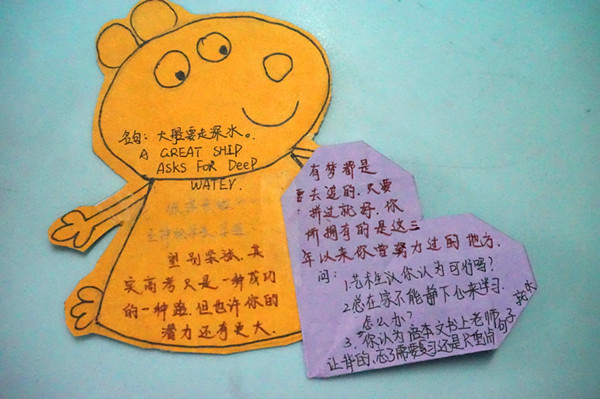 名句：大船要走深水。
A GREAT SHIP
ASKS FOR DeeP
WATEY.
里别尝试。其
实高考只是一种成功
的一种路.但也许你的
潜力还有更大.
有梦都是
要去追的.只要
拼过就好.你
所拥有的是这三
年以来你曾努力过的地方.
问：1.艺术生认你认为可怕吗？
2.总在家不能静下心来学习.
怎么办？
3.你认为语本文书上老师
让背的,忘了需要复习还是只重点
句子